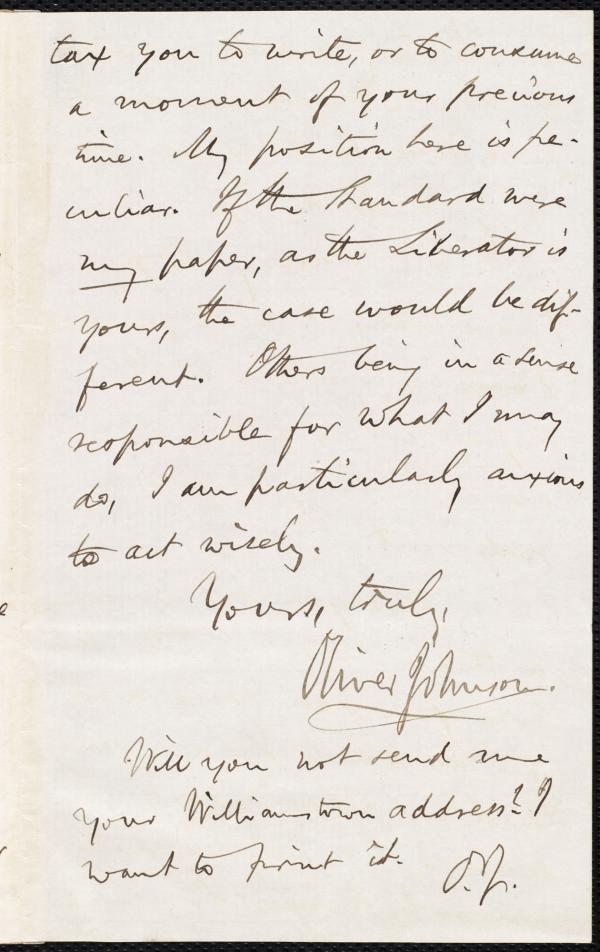 tax you to write, or to consume
a moment of your precious
time. My position here is pe-
culiar. If the Standard were
my paper, as the Liberator is
yours, the case would be dif-
ferent. Others being in a sense
responsible for what I may
do, I am particularly anxious
to act wisely.
Yours, truly,
Oliver Johnson.
Will you not send me
your Williamstown address? I
want to print it. O.J.